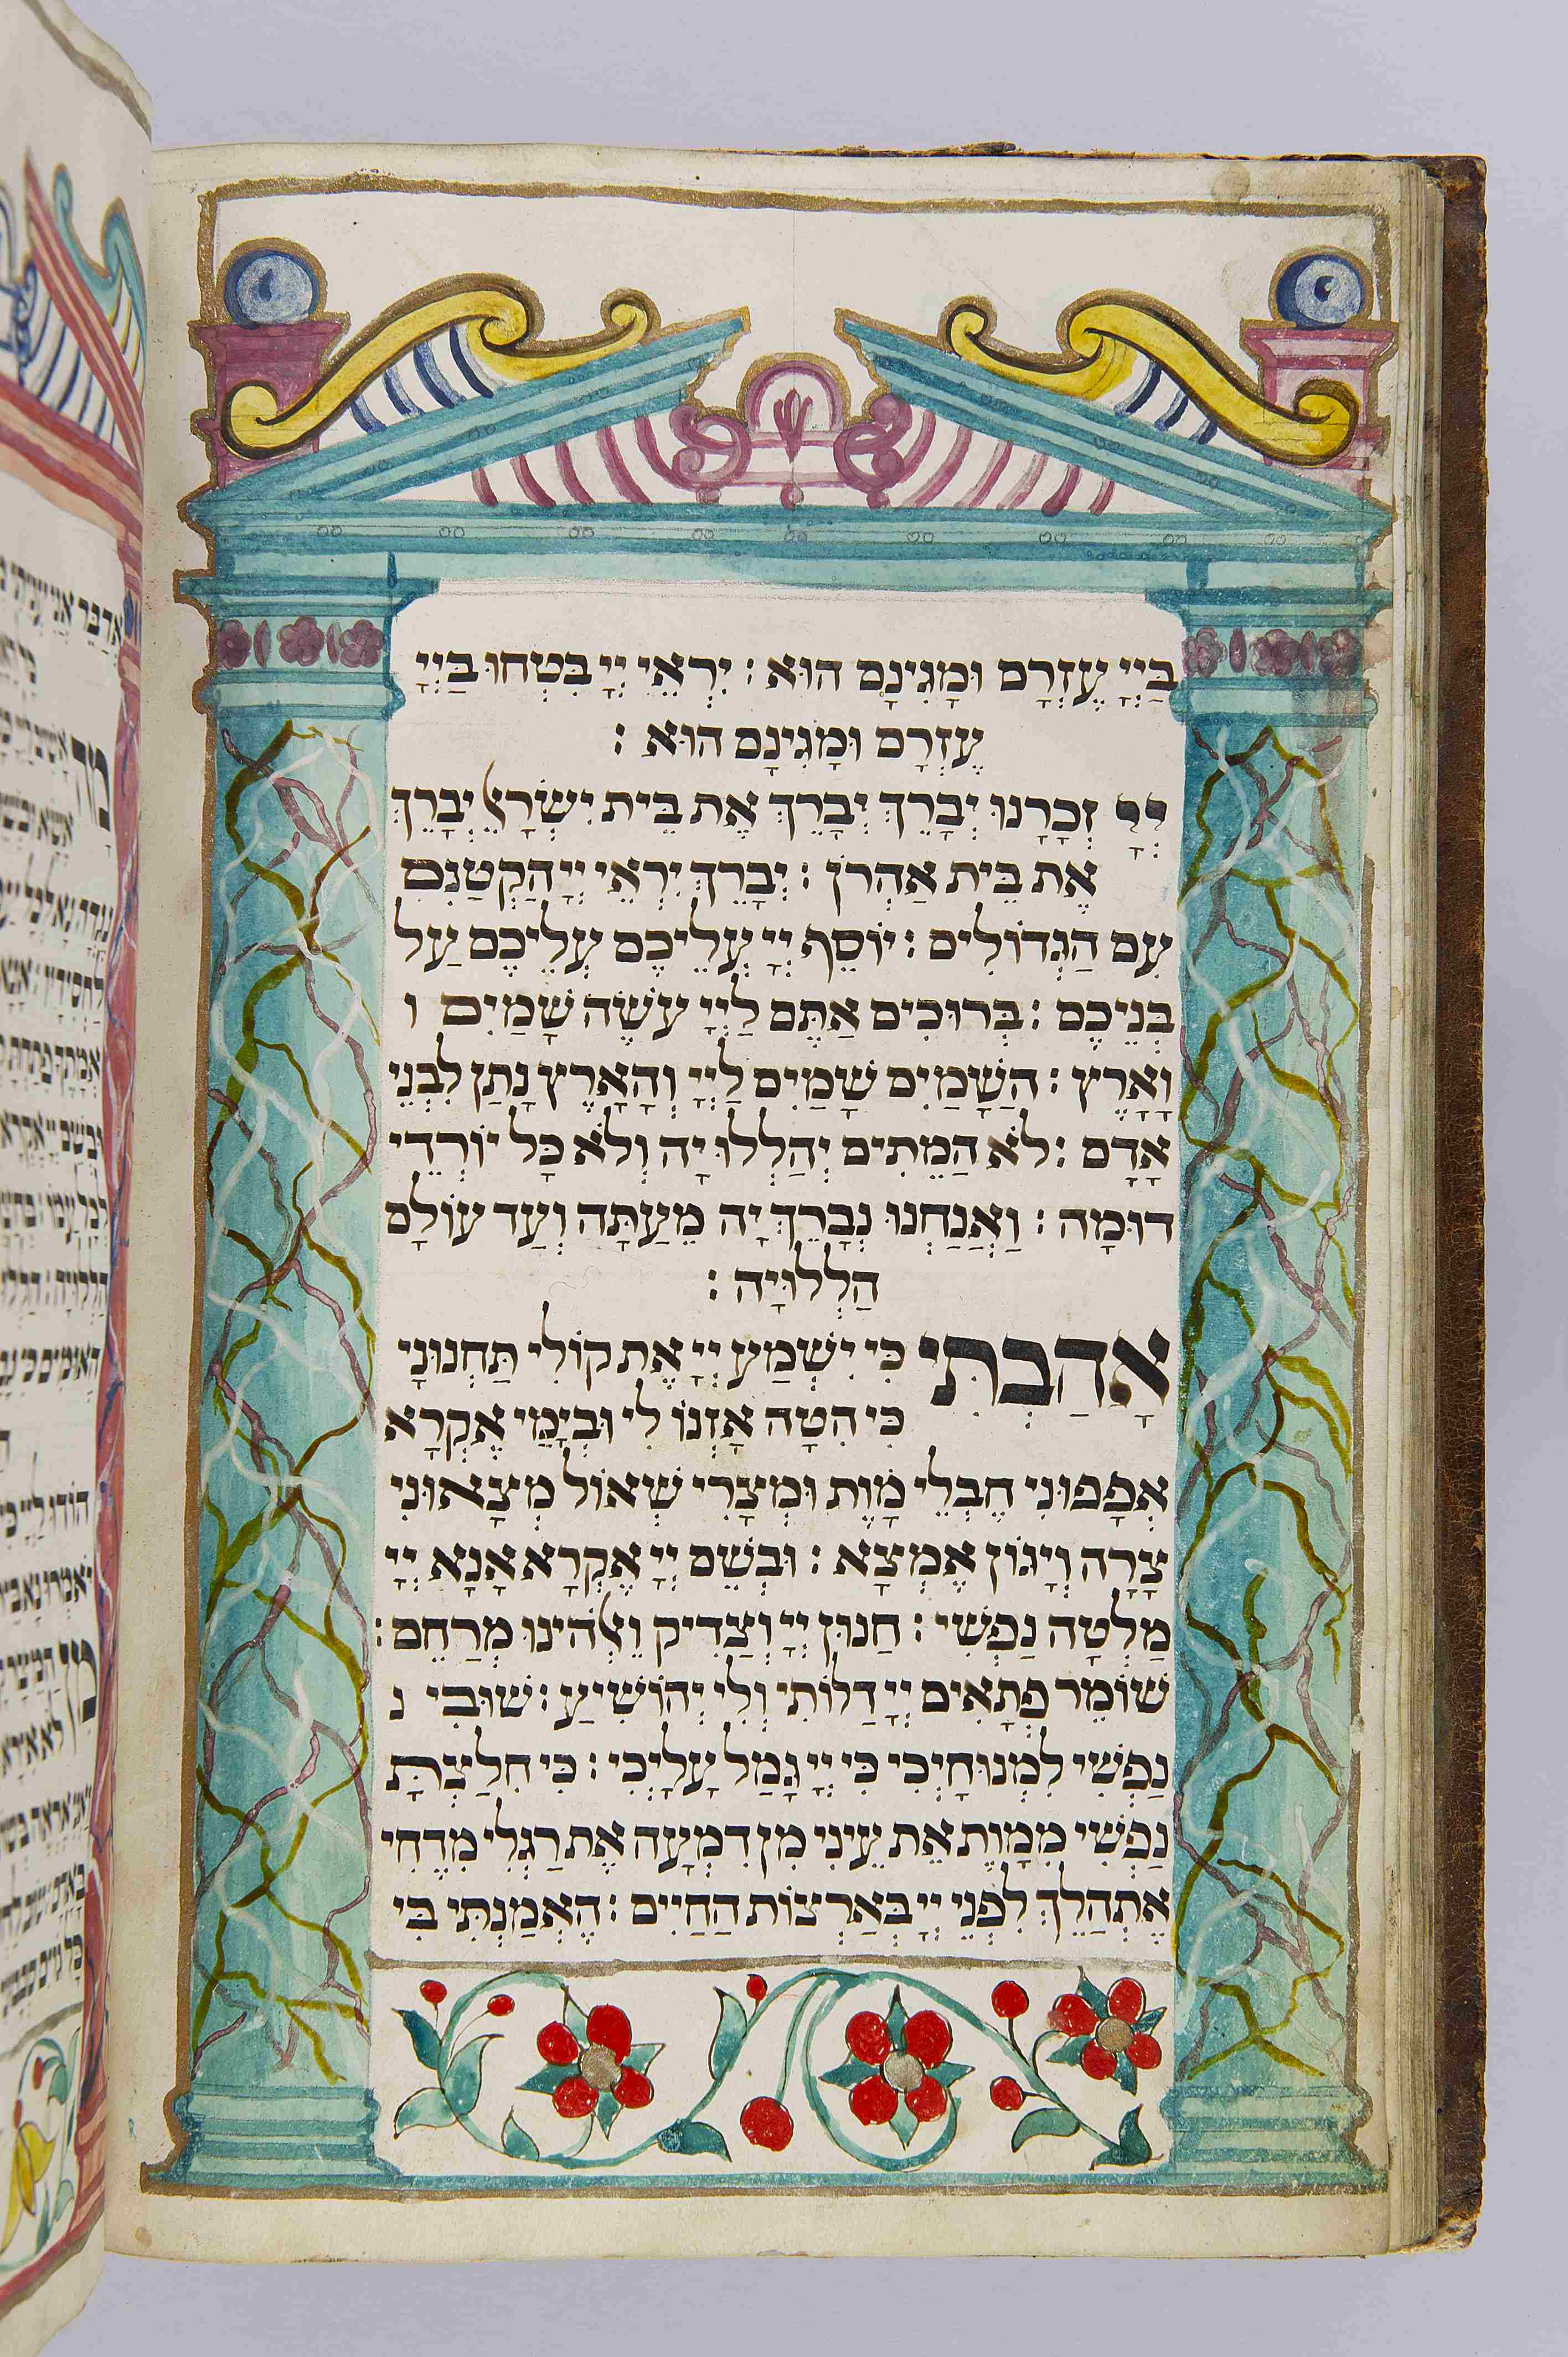 בַּיְיָ עֶזְרָם וּמָגִינָם הוּא : יִרְאֵי יְיָ בִּטְחוּ בַּיְיָ
עֶזְרָם וּמָגִינָם הוּא :
יְיָ זְכָרָנוּ יְבָרֵךְ יְבָרֵךְ אֶת בֵּית יִשְׂרָאֵל יְבָרֵךְ
אֶת בֵּית אַהְרֹן : יְבָרֵךְ יִרְאֵי יְיָ הַקְטַנִּם
עִם הַגְדוֹלִים : יוֹסֵף יְיָ עֲלֵיכֶם עְלֵיכֶם עַל
בְּנֵיכֶם : בְּרוּכִים אַתֶּם לַיְיָ עֹשֶׂה שָׁמַיִם ו
וָאָרֶץ : הַשָׁמַיִם שָׁמַיִם לַיְיָ וְהָאָרֶץ נָתַן לִבְנֵי
אָדָם : לֹא הַמֵתִים יְהַלְלוּ יָה וְלֹא כָּל יוֹרְדֵי
דוּמָה : וַאֲנַחְנוּ נְבָרֵךְ יָה מֵעַתָּה וְעַד עוֹלָם
הַלְלוּיָה :
אָהַבְתִּי כִּי יִשְׁמַע יְיָ אֶת קוֹלִי תַּחְנוּנָי
כִּי הִטָה אָזְנוֹ לִי וּבְיָמַי אֶקְרָא
אְפָפוּנִי חֶבְלֵי מָוֶת וּמְצָרֵי שְׁאוֹל מְצָאוּנִי
צָרָה וְיָגוֹן אֶמְצָא : וּבְשֵׁם יְיָ אֶקְרָא אָנָא יְיָ
מַלְטָה נַפְשִׁי : חַנוּן יְיָ וְצַדִיק וֵאלֹהֵינוּ מְרַחֵם :
שׁוֹמֵר פְּתָאִים יְיָ דַלוֹתִי וְלִי יְהוֹשִׁיעַ : שׁוּבִי נ
נַפְשִׁי לִמְנוּחָיְכִי כִּי יְיָ גָּמַל עָלָיְכִי : כִּי חִלַצְתָּ
נַפְשִׁי מִמָוֶת אֶת עֵינִי מִן דִמְעָה אֶת רַגְלִי מִדֶחִי
אֶתְהַלֵךְ לִפְנֵי יְיָ בְּאַרְצוֹת הַחַיִים : הֶאְמַנְתִּי כִּי